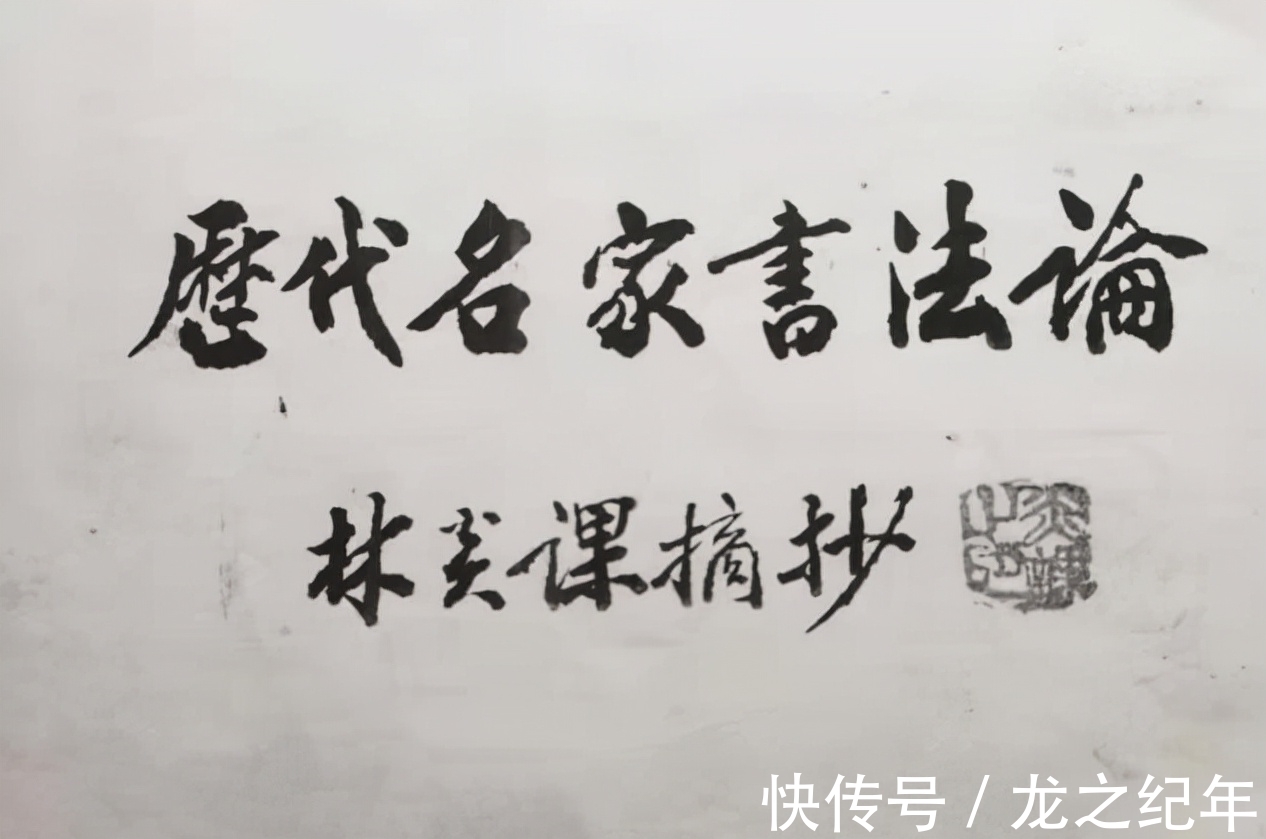 歷代名家書法論
林炎课摘抄
快传号 / 龙之纪年